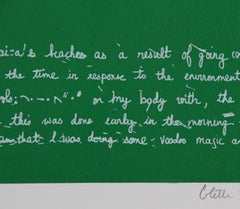 's beaches as a result of going
the time in response to the environment
on my body with, the
this was done early in the morning
that I was doing some voodoo magic